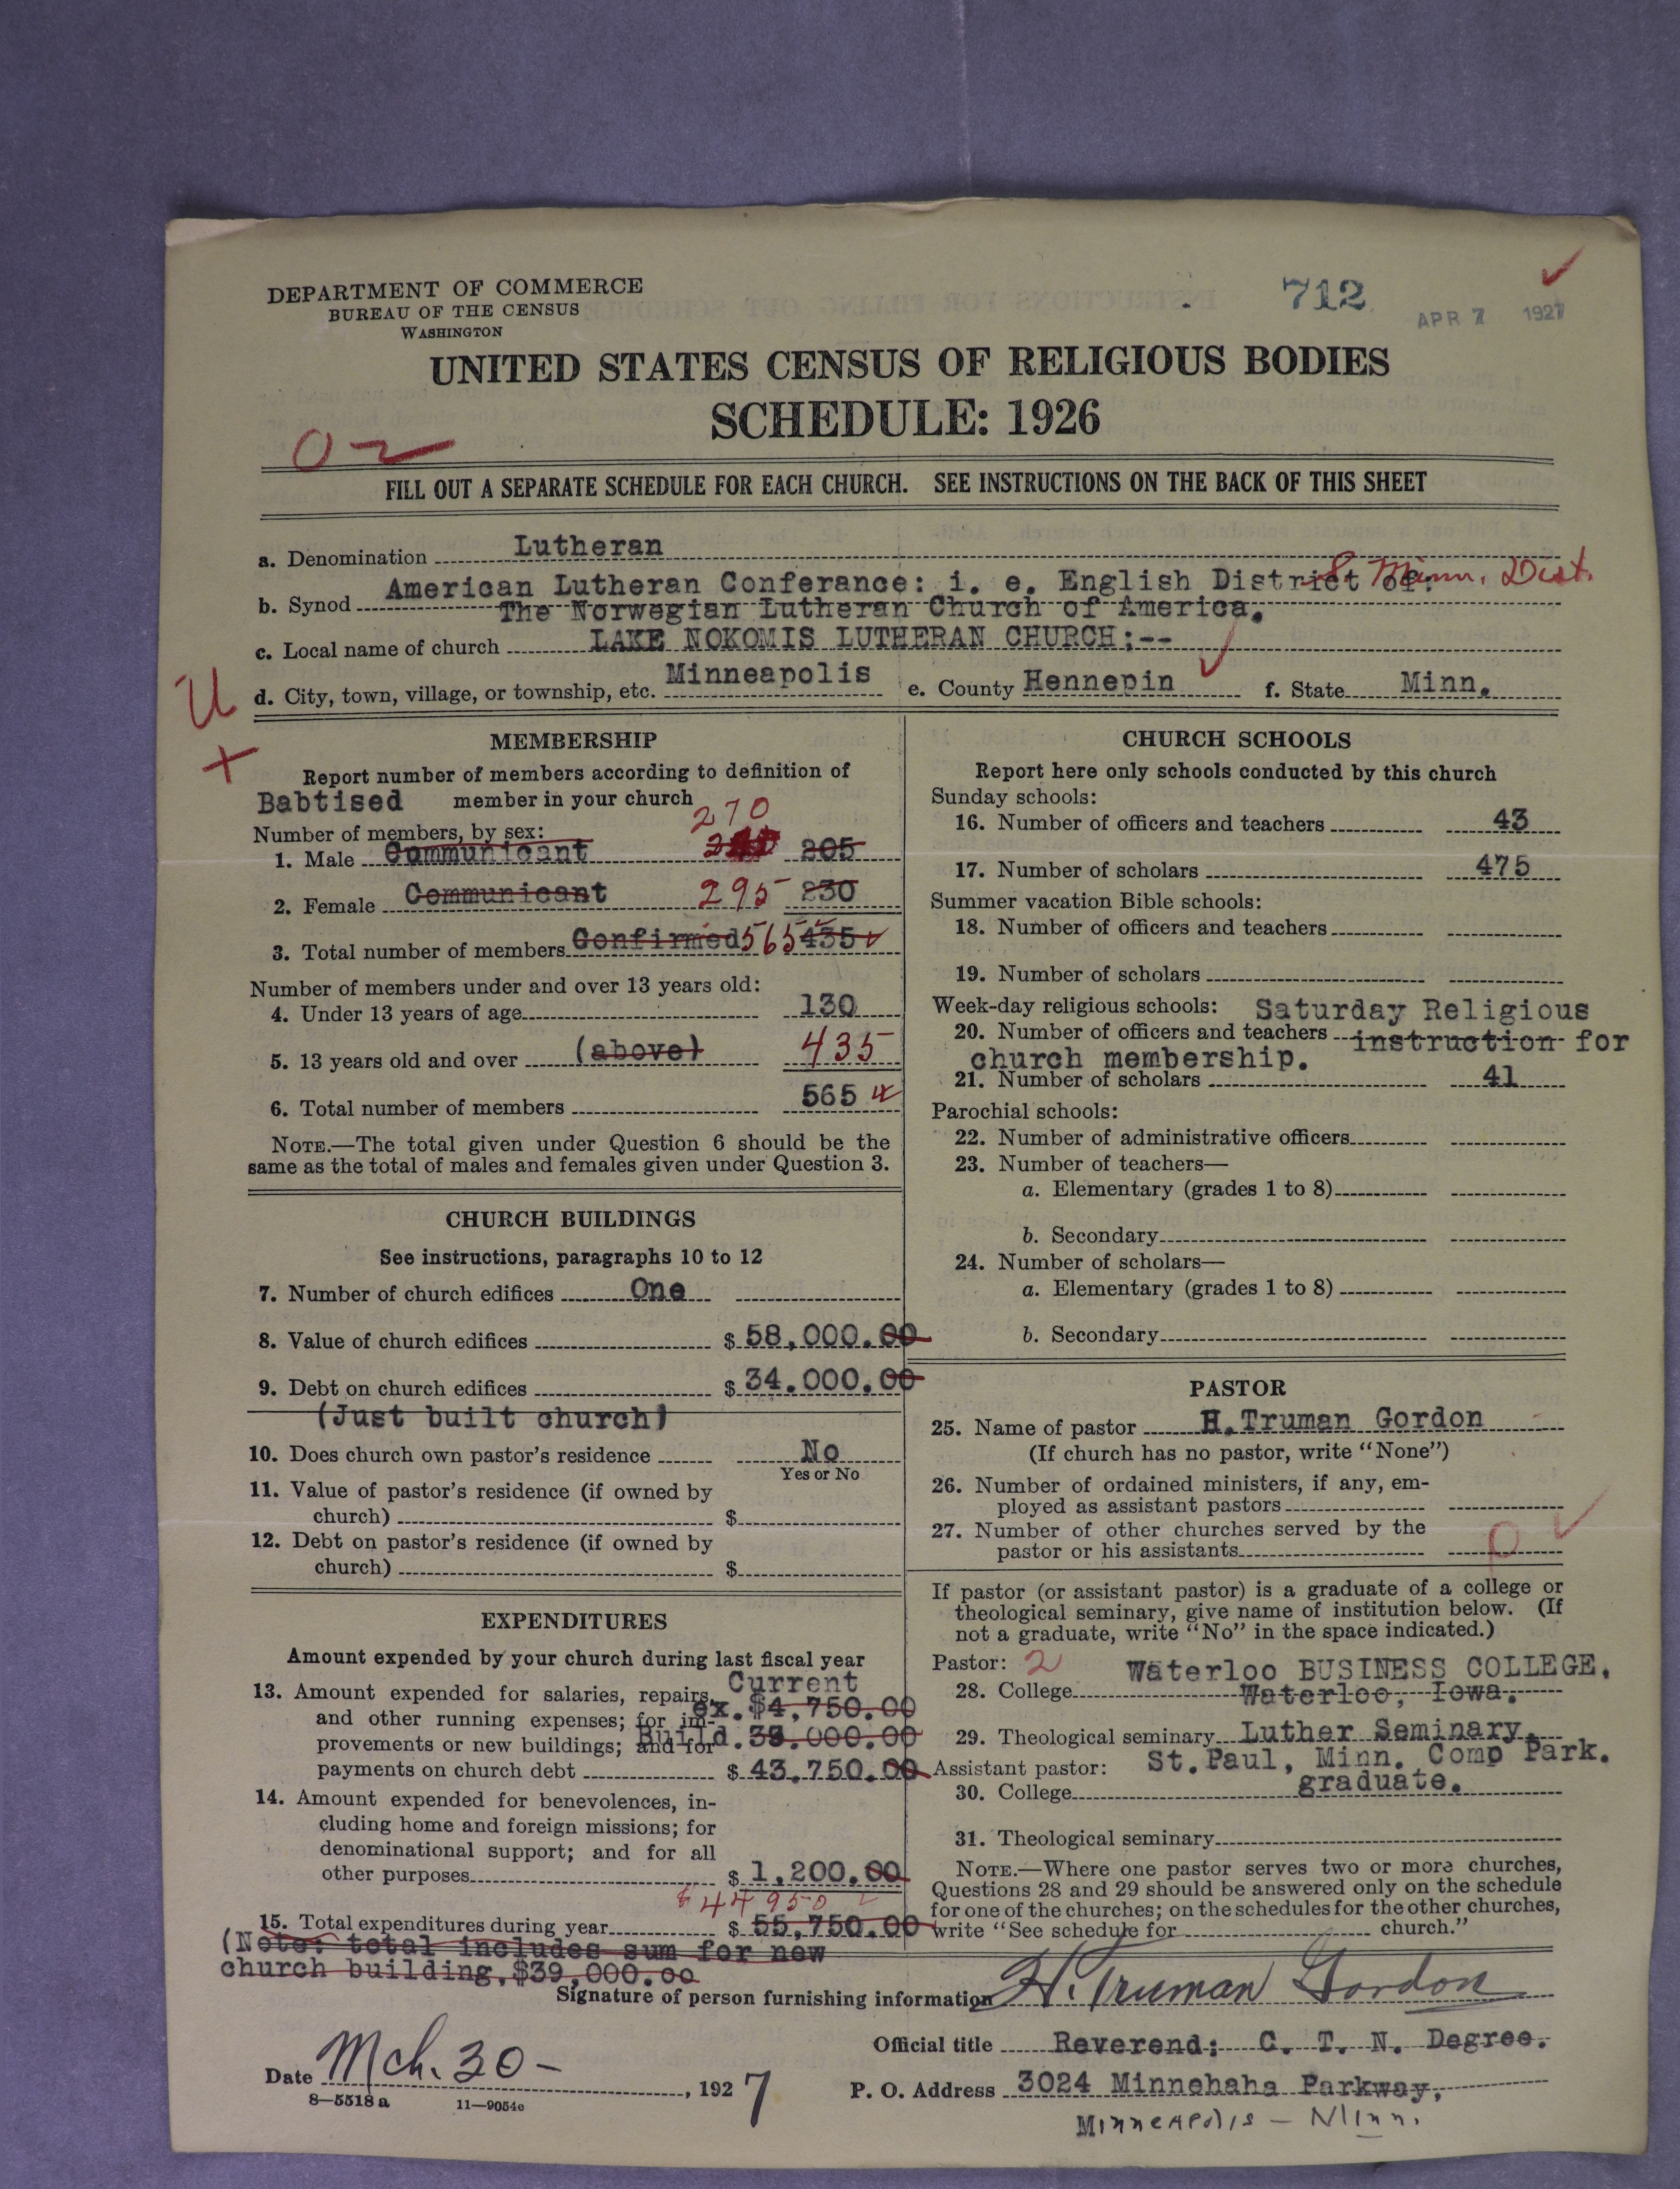 DEPARTMENT OF COMMERCE
BUREAU OF THE CENSUS
WASHINGTON
712
APR 7 1927
UNITED STATES CENSUS OF RELIGIOUS BODIES
SCHEDULE: 1926
FILL OUT A SEPARATE SCHEDULE FOR EACH CHURCH. SEE INSTRUCTIONS ON THE BACK OF THIS SHEET
a. Denomination Lutheran
b. Synod American Lutheran Conferance: i. e. English District of: Minn. Dist.
The Norwegian Lutheran Church of America.
c. Local name of church LAKE NOKOMIS LUTHERAN CHURCH;--
U
d. City, town, village, or township, etc. Minneapolis e. County Hennepin f. State Minn.
MEMBERSHIP
Report number of members according to definition of
Babtised member in your church
270
Number of members, by sex:
1. Male Communicant 205
2. Female Communicant 295 230
3. Total number of members Confirmed 565 435
Number of members under and over 13 years old:
4. Under 13 years of age 130
5. 13 years old and over (above) 435
6. Total number of members 565
NOTE.—The total given under Question 6 should be the
same as the total of males and females given under Question 3.
CHURCH BUILDINGS
See instructions, paragraphs 10 to 12
7. Number of church edifices One
8. Value of church edifices $ 58,000.00
9. Debt on church edifices $ 34.000.00
(Just built church)
10. Does church own pastor's residence No
Yes or No
11. Value of pastor's residence (if owned by
church) $
12. Debt on pastor's residence (if owned by
church) $
EXPENDITURES
Amount expended by your church during last fiscal year
Current
13. Amount expended for salaries, repairs, ex. $4,750.00
and other running expenses; for im-
provements or new buildings; and for Build. 39.000.00
payments on church debt $ 43.750.00
14. Amount expended for benevolences, in-
cluding home and foreign missions; for
denominational support; and for all
other purposes $ 1,200.00
$44950
15. Total expenditures during year $ 55,750.00
(Note: total includes sum for new
church building.$39,000.00
CHURCH SCHOOLS
Report here only schools conducted by this church
Sunday schools:
16. Number of officers and teachers 43
17. Number of scholars 475
Summer vacation Bible schools:
18. Number of officers and teachers
19. Number of scholars
Week-day religious schools: Saturday Religious
20. Number of officers and teachers instruction for
church membership.
21. Number of scholars 41
Parochial schools:
22. Number of administrative officers
23. Number of teachers—
a. Elementary (grades 1 to 8)
b. Secondary
24. Number of scholars—
a. Elementary (grades 1 to 8)
b. Secondary
PASTOR
25. Name of pastor H.Truman Gordon
(If church has no pastor, write "None")
26. Number of ordained ministers, if any, em-
ployed as assistant pastors
27. Number of other churches served by the
pastor or his assistants 0
If pastor (or assistant pastor) is a graduate of a college or
theological seminary, give name of institution below. (If
not a graduate, write "No" in the space indicated.)
Pastor: 2 Waterloo BUSINESS COLLEGE.
28. College Waterloo, Iowa.
29. Theological seminary Luther Seminary.
Assistant pastor: St.Paul, Minn. Comp Park.
30. College graduate.
31. Theological seminary
NOTE.—Where one pastor serves two or more churches,
Questions 28 and 29 should be answered only on the schedule
for one of the churches; on the schedules for the other churches,
write "See schedule for church."
Signature of person furnishing information H. Truman Gordon
Official title Reverend; C. T. N. Degree.
Date Mch. 30 - , 1927
P. O. Address 3024 Minnehaha Parkway,
Minneapolis - Minn.
8—5518 a 11—9054c